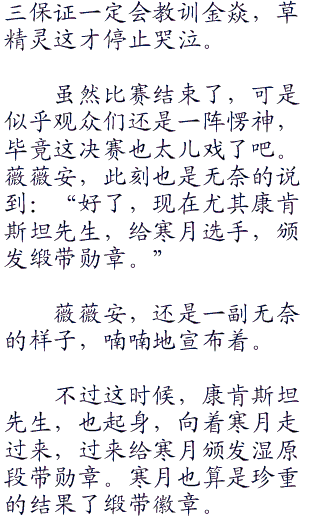 三保证一定会教训金焱，草
精灵这才停止哭泣。
虽然比赛结束了，可是
似乎观众们还是一阵愣神，
毕竟这决赛也太儿戏了吧。
薇薇安，此刻也是无奈的说
到：“好了，现在尤其康肯
斯坦先生，给寒月选手，颁
发缎带勋章。”
薇薇安，还是一副无奈
的样子，喃喃地宣布着。
不过这时候，康肯斯坦
先生，也起身，向着寒月走
过来，过来给寒月颁发湿原
段带勋章。寒月也算是珍重
的结果了缎带徽章。